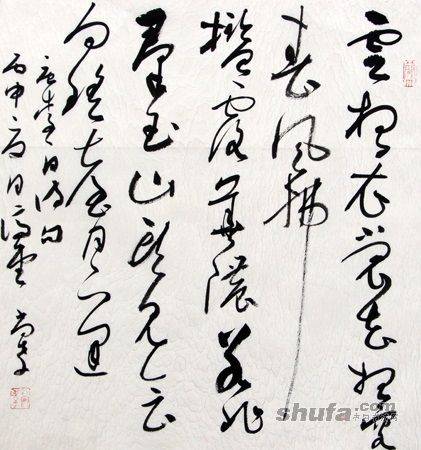 雲想衣裳花想容
春风拂
槛露華濃若非
群玉山头见会
向瑶台月下逢
诗句
丙申夏日
shufa.com